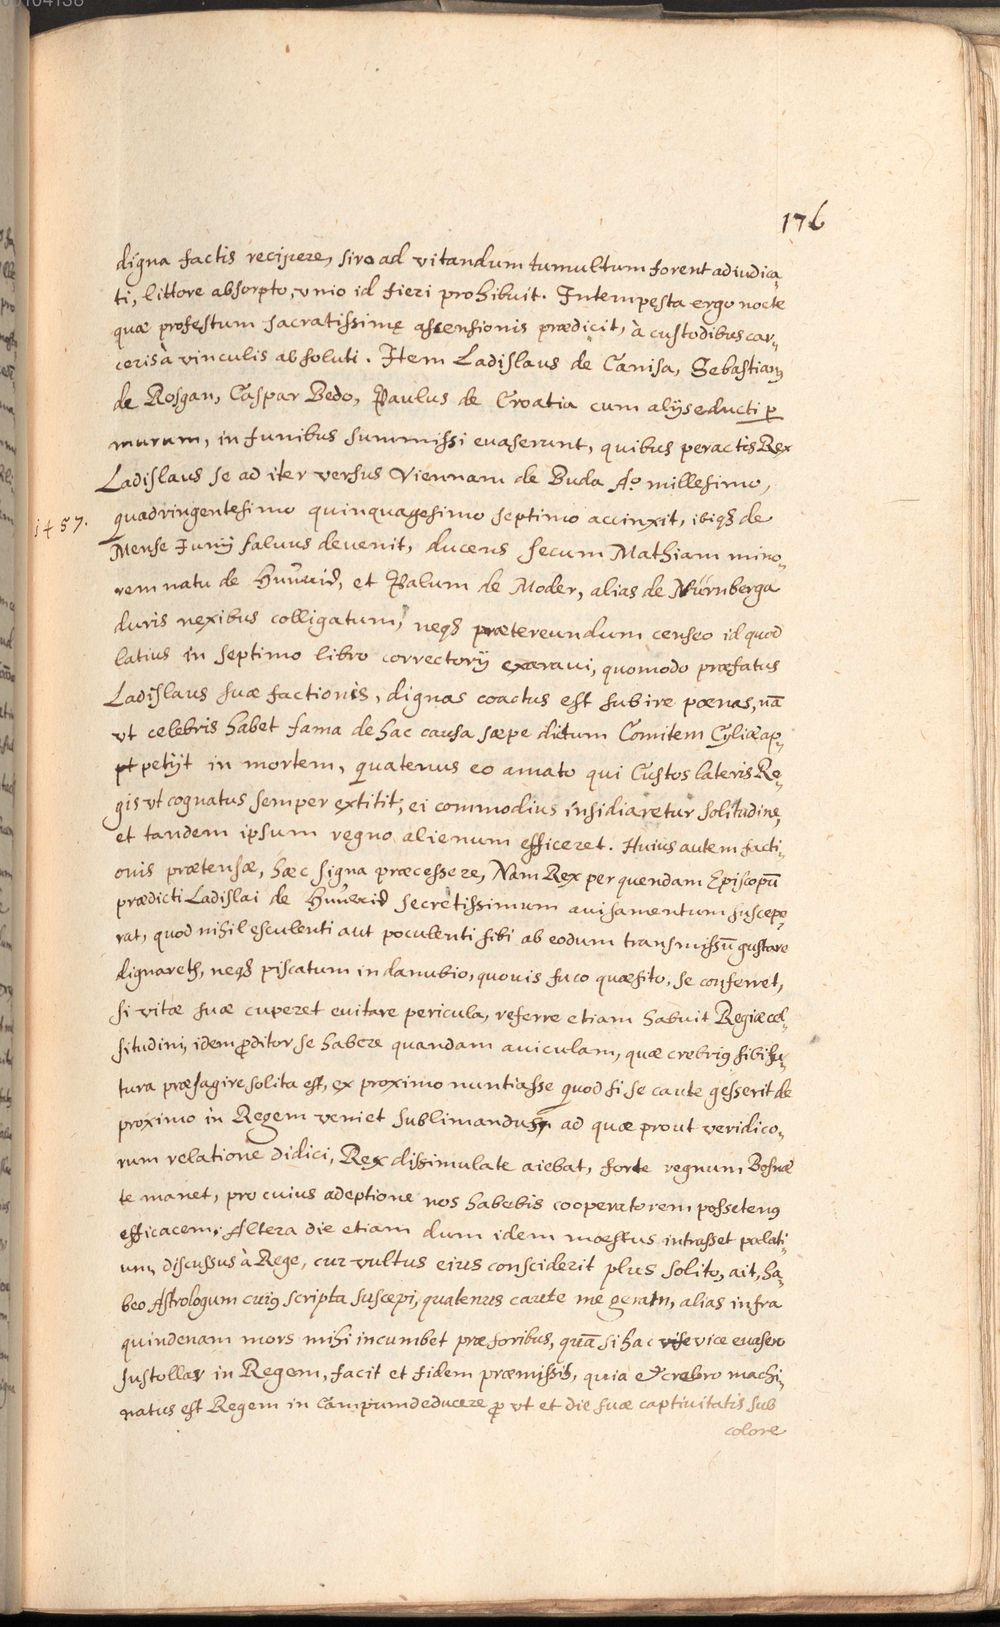 176
digna factis recipere, sivo ad vitandum tumultum forent adiudica„
ti, littore absorpto, vnio id fieri prohibuit. Intempesta ergo nocte
quæ profestum sacratissimę assensionis prædicit, à custodibus car„
ceris à vinculis absoluti. Item Ladislaus de Canisa, Sebastian9
de Rosgan, Caspar Bedo, Paulus de Croatia cum alijs educti p̱
murum, in funibus summissi euaserunt, quibus peractis Rex
Ladislaus se ad iter versus Viennam de Buda Ao millesimo,
1457. quadringentesimo quinquagesimo septimo accinxit, ibiq3 de
Mense Junij saluus deuenit, ducens secum Mathiam mino„
rem natu de Hunũid, et Palum de Moder, alias de Nürnberga
duris nexibus colligatum, neq3 prætereundum censeo id quod
latius in septimo libro correctorij exaraui, quomodo præfatus
Ladislaus suæ factionis, dignas coactus est subire pœnas, nā
vt celebris habet fama de hac causa sæpe dictum Comitem Cyliæ ap„
petijt in mortem, quatenus eo amato qui Custos lateris Re„
gis vt cognatus semper extitit, ei commodius insidiaretur solitudine,
et tandem ipsum regno alienum efficeret. Huius autem facti„
onis prætensæ, hæc signa præcessere, Nam Rex per quendam Episcopū
prædicti Ladislai de secretissimum auisamentum suscepe„
rat, quod nihil esculenti aut poculenti sibi ab eodum transmissū gustare
dignareth, neq3 piscatum in danubio, quouis fuco quæsito, se conferret,
si vitæ suæ cuperet euitare pericula, referre etiam habuit Regiæ cel„
situdini, idem ꝓditor se habere quandam auiculam, quæ crebri9 sibi fu„
tura præsagire solita est, ex proximo nuntiasse quod si se caute gesserit de
proximo in Regem veniet sublimandus, ad quæ prout veridico„
rum relatione didici, Rex dissimulate aiebat, forte regnum Bosnæ
te manet, pro cuius adeptione nos habebis cooperatorem posseten9
efficacem, Altera die etiam dum idem moestus intrasset palati„
um, discussus à Rege, cur vultus eius consciderit plus solito, ait, ha„
beo Astrologum cui9 scripta suscepi, quatenus caute me geram, alias infra
quindenam mors mihi incumbet præ foribus, quā si hac vise vice euasero
sustollar in Regem, facit et fidem præmissis, quia et crebro machi„
natus est Regem in campum deducere ꝓ vt et die suæ captiuitatis sub
colore